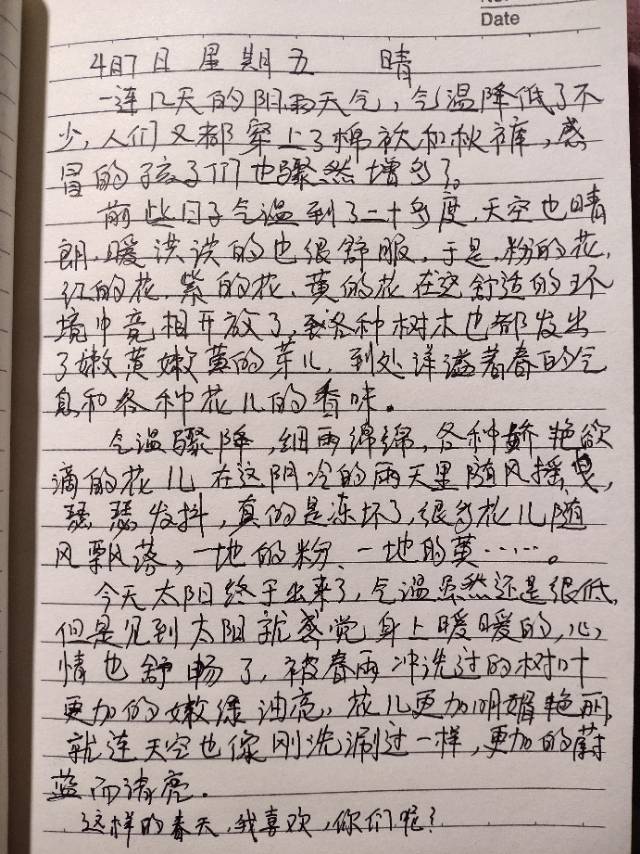 Date
4月7日 星期五 晴
一连几天的阴雨天气，气温降低了不
少，人们又都穿上了棉袄和秋裤，感
冒的孩子们也骤然增多了。
前些日子气温到了二十多度，天空也晴
朗，暖洪洪的也很舒服，于是，粉的花，
红的花，紫的花，黄的花在这舒适的环
境中竞相开放了，各种树木也都发出
了嫩黄嫩黄的芽儿，到处洋溢着春的气
息和各种花儿的香味。
气温骤降，细雨绵绵，各种娇艳欲
滴的花儿在这阴冷的雨天里随风摇曳，
瑟瑟发抖，真的是冻坏了，很多花儿随
风飘落，一地的粉、一地的黄……。
今天太阳终于出来了，气温虽然还是很低，
但是见到太阳就感觉身上暖暖的，心
情也舒畅了，被春雨冲洗过的树叶
更加的嫩绿油亮，花儿更加明媚艳丽，
就连天空也像刚洗涮过一样，更加的蔚
蓝而清亮.
这样的春天，我喜欢，你们呢？